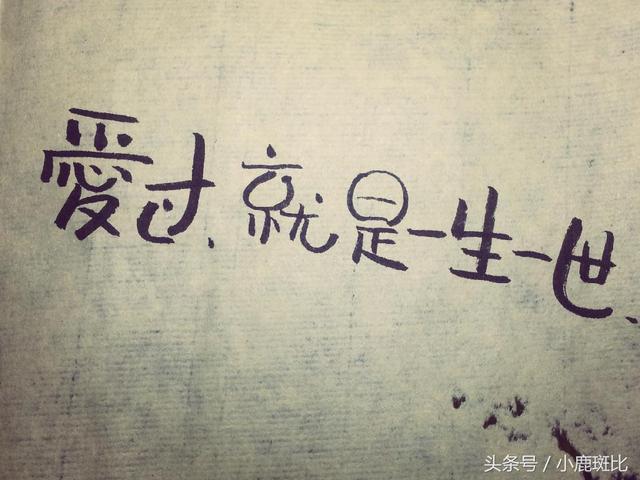 愛过、就是一生一世、
头条号／小鹿斑比